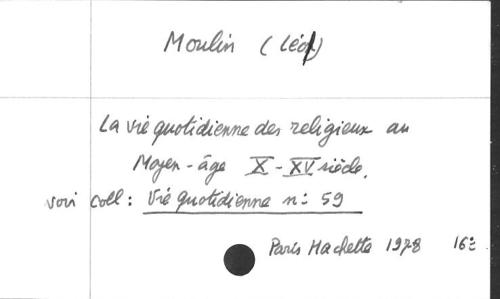 Moulin (Léo)
La vie quotidienne des religieux au
Moyen-âge X-XV siècle.
voir coll: Vie quotidienne n: 59
Paris Hachette 1978 16: